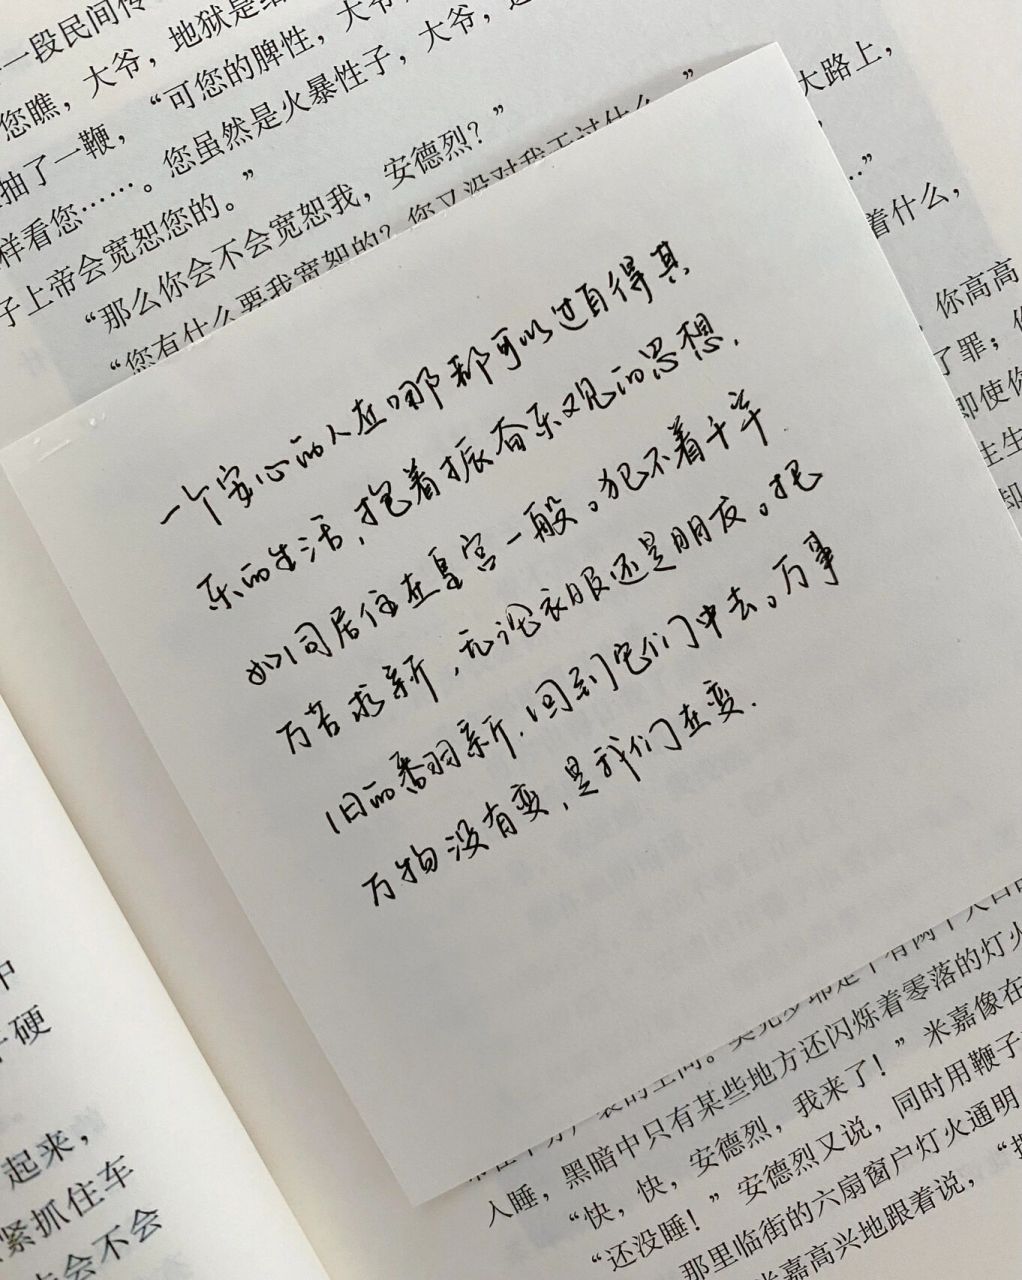 一段民间传
您瞧，大爷，地狱是给
抽了一鞭，“可您的脾性，大爷，
样看您……。您虽然是火暴性子，大爷，这
子上帝会宽恕您的。”
“那么你会不会宽恕我，安德烈？”
“您有什么要我宽恕的？您又没对我干过什么。”
大路上，
…”
着什么，
你高高
了罪；
即使你
主生
却
一个安心的人在哪都可以过自得其
乐的生活，抱着振奋乐观的思想，
如同居住在皇宫一般。犯不着千辛
万苦求新，无论衣服还是朋友。把
旧的番羽新，回到它们中去。万事
万物没有变，是我们在变.
中
硬
起来，
紧抓住车
会不会
黑暗中只有某些地方还闪烁着零落的灯火
入睡，
“快，快，安德烈，我来了！”米嘉像在
“还没睡！”安德烈又说，同时用鞭子
那里临街的六扇窗户灯火通明
米嘉高兴地跟着说，“